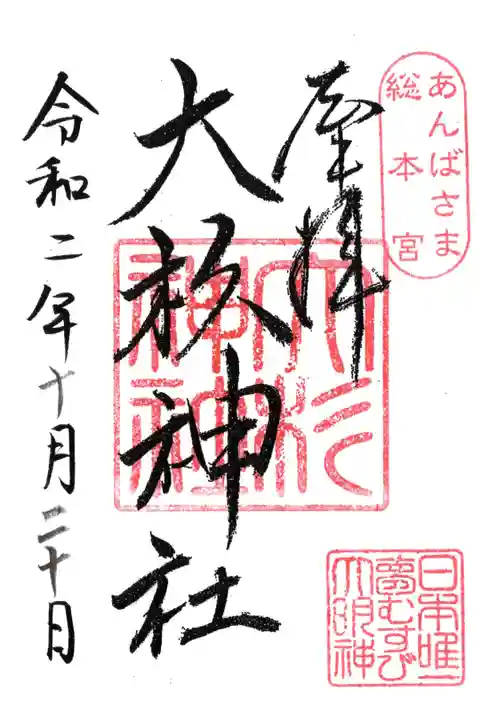 あんばさま
総本宮
奉拝
大杉神社
大杉
神社
日本唯一
夢むすび
大明神
令和二年十月二十日